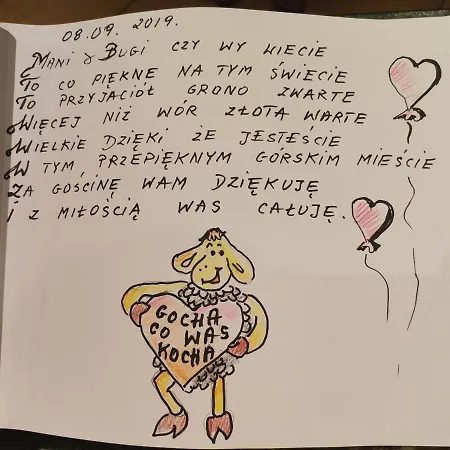 08.09. 2019.
MANI & BUGI CZY WY WIECIE
TO CO PIĘKNE NA TYM ŚWIECIE
TO PRZYJACIÓŁ GRONO ZWARTE
WIĘCEJ NIŻ WÓR ZŁOTA WARTE
WIELKIE DZIĘKI ŻE JESTEŚCIE
W TYM, PRZEPIĘKNYM GÓRSKIM MIEŚCIE
ZA GOŚCINĘ WAM DZIĘKUJĘ
I Z MIŁOŚCIĄ WAS CAŁUJĘ.
GOCHA
CO WAS
KOCHA